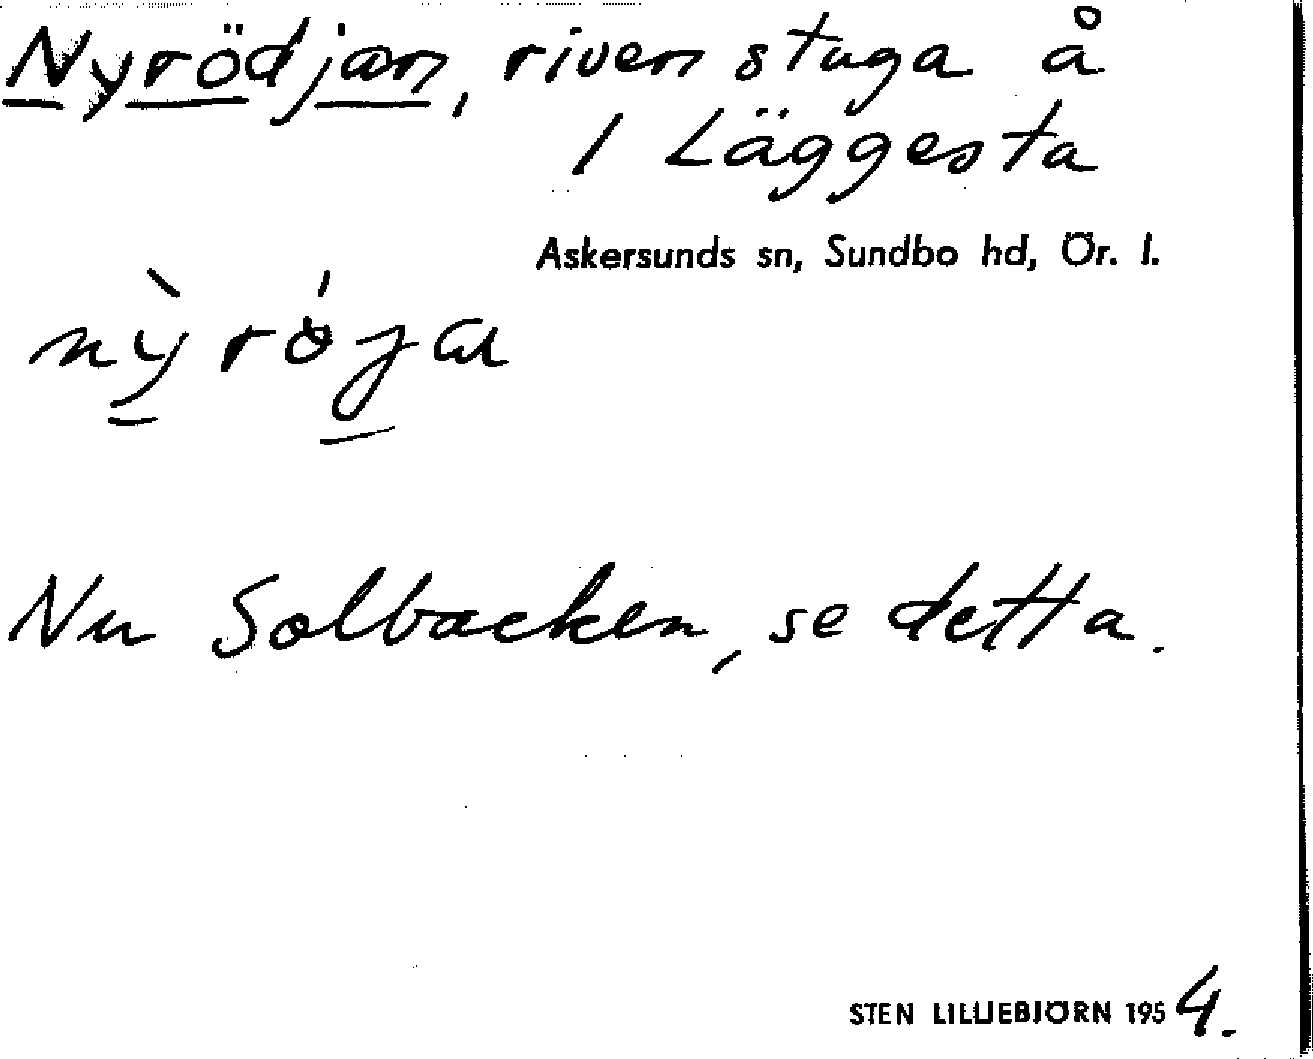 Nyrödjan, riven stuga å
1 Läggesta
Askersunds sn, Sundbo hd, Ör. l.
nỳrö́ja
Nu Solbacken, se detta.
STEN LILLIEBJÖRN 1954.